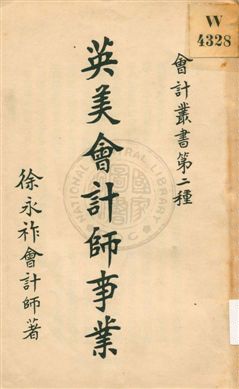 W
4328
會計叢書第二種
英美會計師事業
徐永祚會計師著
NATIONAL CENTRAL LIBRARY